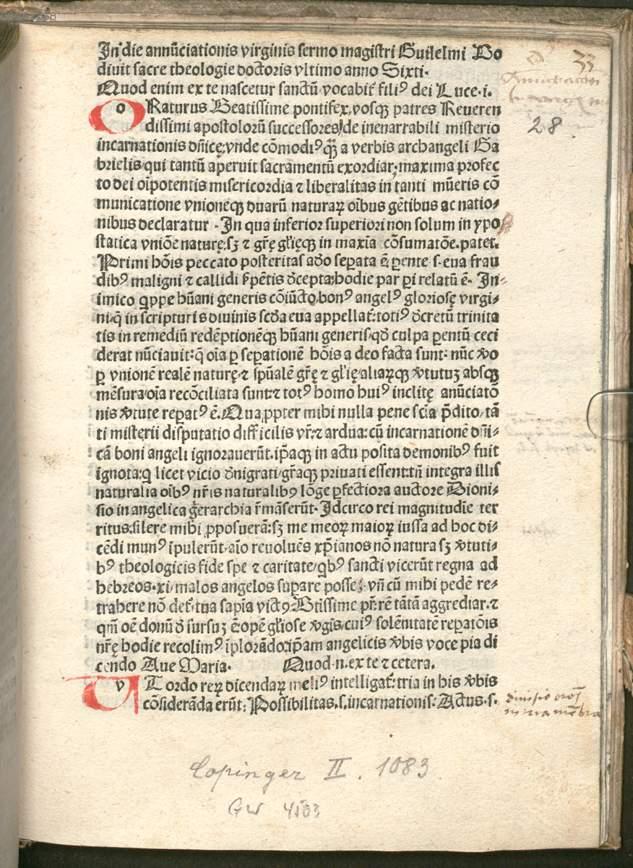 In die annūciationis virginis sermo magistri Guilelmi Bo
divit sacre theologie doctoris vltimo anno Sixti.
Quod enim ex te nascetur sanctū vocabit᷑ filiꝰ dei Luce.i.
oRaturus Beatissime pontifex, vosqꝫ patres Reueren
dissimi apostolorū successores/de inenarrabili misterio
incarnationis dn̄ice,vnde cōmodiꝰ qꝫ̄ a verbis archangeli Ga
brielis qui tantū aperuit sacramentū exordiar,maxima profec
to dei oīpotentis misericordia ⁊ liberalitas in tanti mūeris cō
municatione vnioneqꝫ duarū naturaꝝ oībus gētibus ac natio-
nibus declaratur . In qua inferior superiori non solum in ypo
statica vniōe nature,sꝫ ⁊ gr̄e gl̄ieqꝫ in maxīa cōsumatōe.patet.
Primi hōis peccato posteritas a dō seꝑata ē ꝑente .s.eua frau
dibꝰ maligni ⁊ callidi ẜpētis dcepta:hodie par ꝑi relatū ē. In-
imico qꝓpe hūani generis cōiūcto,bonꝰ angelꝰ gloriose virgi-
ni:q̄ in scripturis diuinis scd̄a eua appellat᷑:totiꝰ dcretū trinita
tis in remediū redēptioneqꝫ hūani generis,qd culpa ꝑentū ceci
derat nūciauit:q̄ oīa ꝑ seꝑationē hōis a deo facta sunt: nūc vo
ꝑ vnionē realē nature,⁊ spūalē gr̄e ⁊ gl̄ie aliarūqꝫ vtutuꝫ absqꝫ
mēsura oīa recōciliata sunt:⁊ totꝰ homo huiꝰ inclite anūciatō
nis vtute reꝑatꝰ ē. Qua,ppter mihi nulla pene scīa ꝑdito, tā
ti misterii disputatio difficilis vr̄⁊ ardua: cū incarnationē dn̄i-
cā boni angeli ignorauerūt. ip̄aqꝫ in actu posita demonibꝰ fuit
ignota:q̄ licet vicio dnigrati gr̄aqꝫ priuati essent:tn̄ integra illis
naturalia oībꝰ nr̄is naturalibꝰ lōge ꝑfectiora auctore Dioni-
sio in angelica gerarchia r̄māserūt. Idcirco rei magnitudīe ter
ritus:silere mihi ꝓposuerā: sꝫ me meoꝝ maioꝝ iussa ad hoc di-
cēdi munꝰ īpulerūt. aīo reuolues xp̄ianos nō natura sꝫ vtuti-
bꝰ theologicis fide spe ⁊ caritate,qbꝰ sancti vicerūt regna ad
hebreos.xi. malos angelos suꝑare posse; vn̄ cū mihi pedē re-
trahere nō det᷑: tua sapīa Btissime pr̄ rē tātā aggrediar. ⁊
qm̄ oē donū d sursuꝫ ē:ope gl̄iose vgīs:cuiꝰ solēnitatē reꝑatōis
nr̄e hodie recolimꝰ īplorādo:ip̄am angelicis vbis voce pia di
cendo Aue Maria. Quod .n.ex te ⁊ cetera.
vT ordo reꝝ dicendaꝝ meliꝰ intelligat᷑: tria in his vbis
cōsiderāda erūt: Possibilitas .s.incarnationis: Actus .s.
33
28.
divisio
Copinger II. 1083
GW 4503